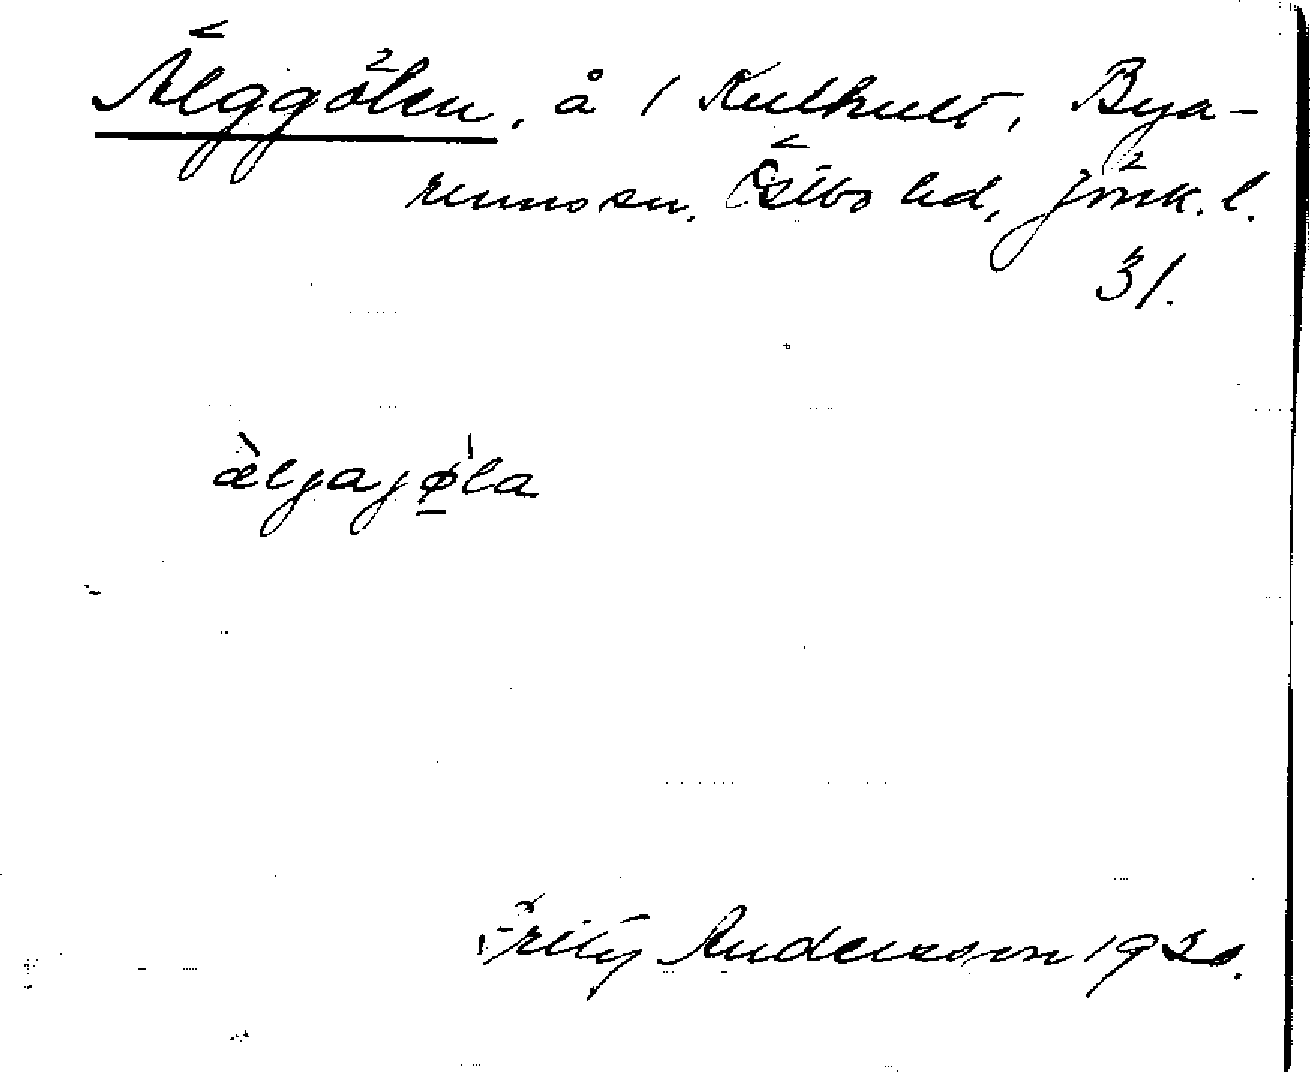 Älggölen, å 1 Kulhult, Bya-
rums sn. Östbo hd, Jönk. l.
31.
àljajø̲'la
Fritz Andersson 1930.